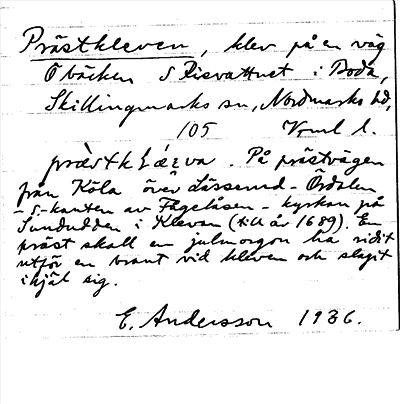 Prästkleven, klev på en väg
O bäcken S Risvattnet i Boda,
Skillingmarks sn, Nordmarks hd,
105 Vrml l.
På prästvägen
från Köla över Lässerud - Ördalen
- S-kanten av Fågelåsen - kyrkan på
Sundudden i Klevan (till år 1689). En
präst skall en julmorgon ha ridit
utför en brant vid kleven och slagit
ihjäl sig.
E. Andersson 1936.